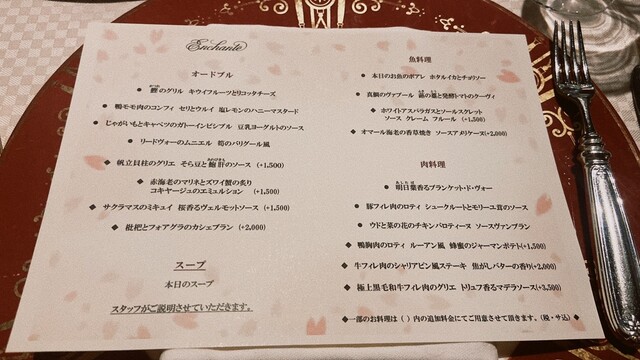 Enchanté
オードブル
● 鰹のグリル キウイフルーツとリコッタチーズ
● 鴨モモ肉のコンフィ セリとウルイ 塩レモンのハニーマスタード
● じゃがいもとキャベツのガトーインビジブル 豆乳ヨーグルトのソース
● リードヴォーのムニエル 筍のバリグール風
◆ 帆立貝柱のグリエ そら豆と鮑肝のソース (+1,500)
◆ 赤海老のマリネとズワイ蟹の炙り
コキヤージュのエミュルション (+1,500)
◆ サクラマスのミキュイ 桜香るヴェルモットソース (+1,500)
◆ 枇杷とフォアグラのカシェブラン (+2,000)
スープ
本日のスープ
スタッフがご説明させていただきます。
魚料理
● 本日のお魚のポアレ ホタルイカとチョリソー
● 真鯛のヴァプール 蛤の麺と発酵トマトのクーヴィ
◆ ホワイトアスパラガスとソールスクレット
ソース クレーム フルール (+1,500)
◆ オマール海老の香草焼き ソースアメリケーヌ(+2,000)
肉料理
● 明日葉香るブランケット・ド・ヴォー
● 豚フィレ肉のロティ シュークルートとモリーユ茸のソース
● ウドと菜の花のチキンバロティーヌ ソースヴァンブラン
◆ 鴨胸肉のロティ ルーアン風 蜂蜜のジャーマンポテト(+1,500)
◆ 牛フィレ肉のシャリアピン風ステーキ 焦がしバターの香り(+2,000)
◆ 極上黒毛和牛フィレ肉のグリエ トリュフ香るマデラソース(+3,500)
◆一部のお料理は ( ) 内の追加料金にてご用意させて頂きます。(税・サ込) ◆